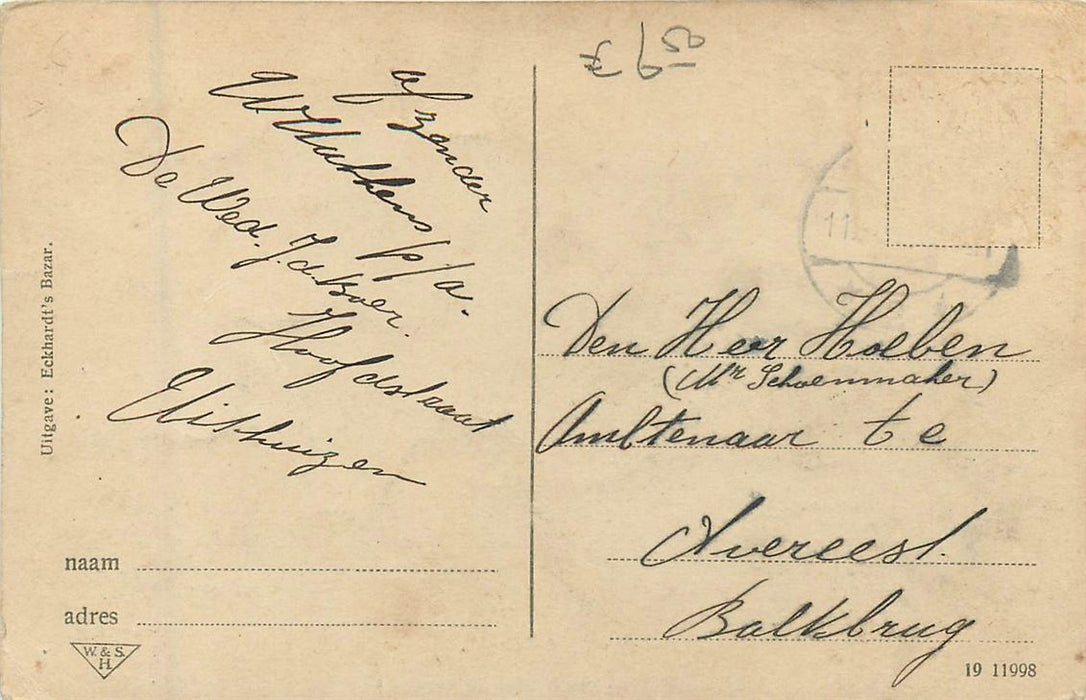 afzender
W Huthens p/a.
De Wed. J. de Boer.
Hoofdstraat
Uithuizen
Uitgave: Eckhardt's Bazar.
naam
adres
W. & S.
H.
6 50
11
Den Heer Hoeben
(Mr Schoenmaker)
Ambtenaar te
Avereest.
Balkbrug
19 11998